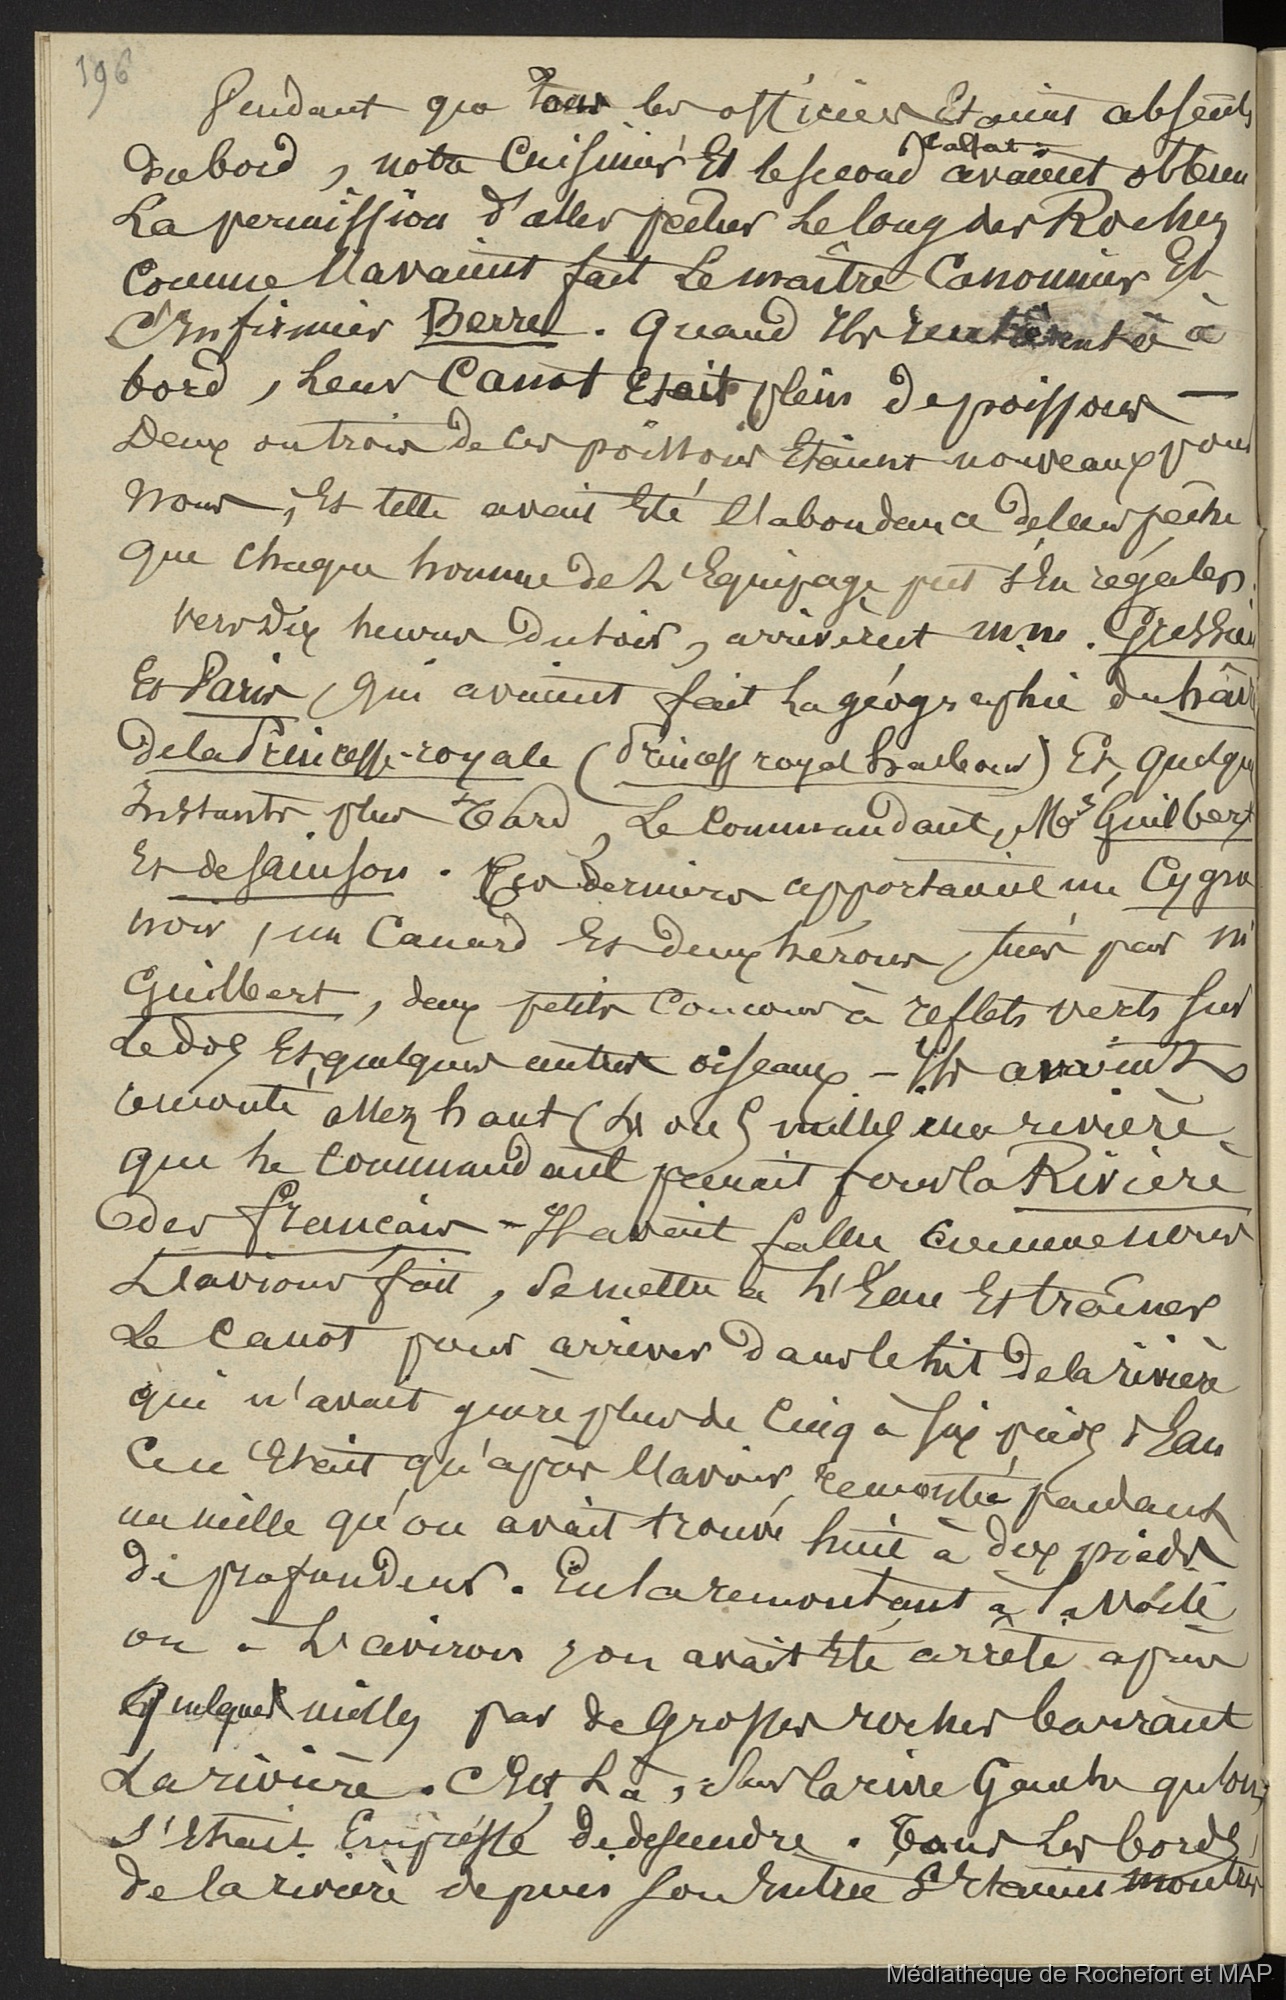 196
Pendant que tous les officiers Etaient absents
du bord, notre Cuisinier Et le second calfat avaient obtenu
La permission d'aller pêcher Le long des Rochers
Comme l'avaient fait Le maître Canonnier Et
L'Infirmier Berre. Quand Ils rentrèrent à
bord, Leur Canot Etait plein de poissons —
Deux ou trois de ces poissons Etaient nouveaux pour
nous, Et telle avait Eté l'abondance de leur pêche
que chaque homme de L'Equipage put s'En régaler.
Vers Dix heures du soir, arrivèrent m.m. Gressien
Et Paris, qui avaient fait La géographie du hâvre
de la Princesse-royale (Princess royal harbour) Et, quelques
Instants plus Tard, Le Commandant, Mrs Guilbert
Et de Sainson. Ces derniers apportaient un Cygne
noir, un Canard Et deux hérons, tués par Mr
Guilbert, deux petits Coucous à reflets verts sur
Le dos Et quelques autres oiseaux - Ils avaient
remonté assez haut (4 ou 5 milles) une rivière
que Le Commandant prenait pour la Rivière
des français - Il avait fallu comme nous
L'avions fait, se mettre à L'Eau Et traîner
Le Canot pour arriver dans le Lit de la rivière
qui n'avait guère plus de Cinq à six pieds d'Eau
Ce n'Etait qu'après l'avoir remontée pendant
un mille qu'on avait trouvé huit à dix pieds
de profondeur. En la remontant à la voile
ou à L'aviron, on avait Eté arrêté après
quelques milles par de Grosses roches barrant
La rivière. C'Est Là, sur la rive Gauche qu'on
s'Etait Empressé de descendre. Tous Les bords
de la rivière depuis son Entrée s'Etaient montrés
Médiathèque de Rochefort et MAP